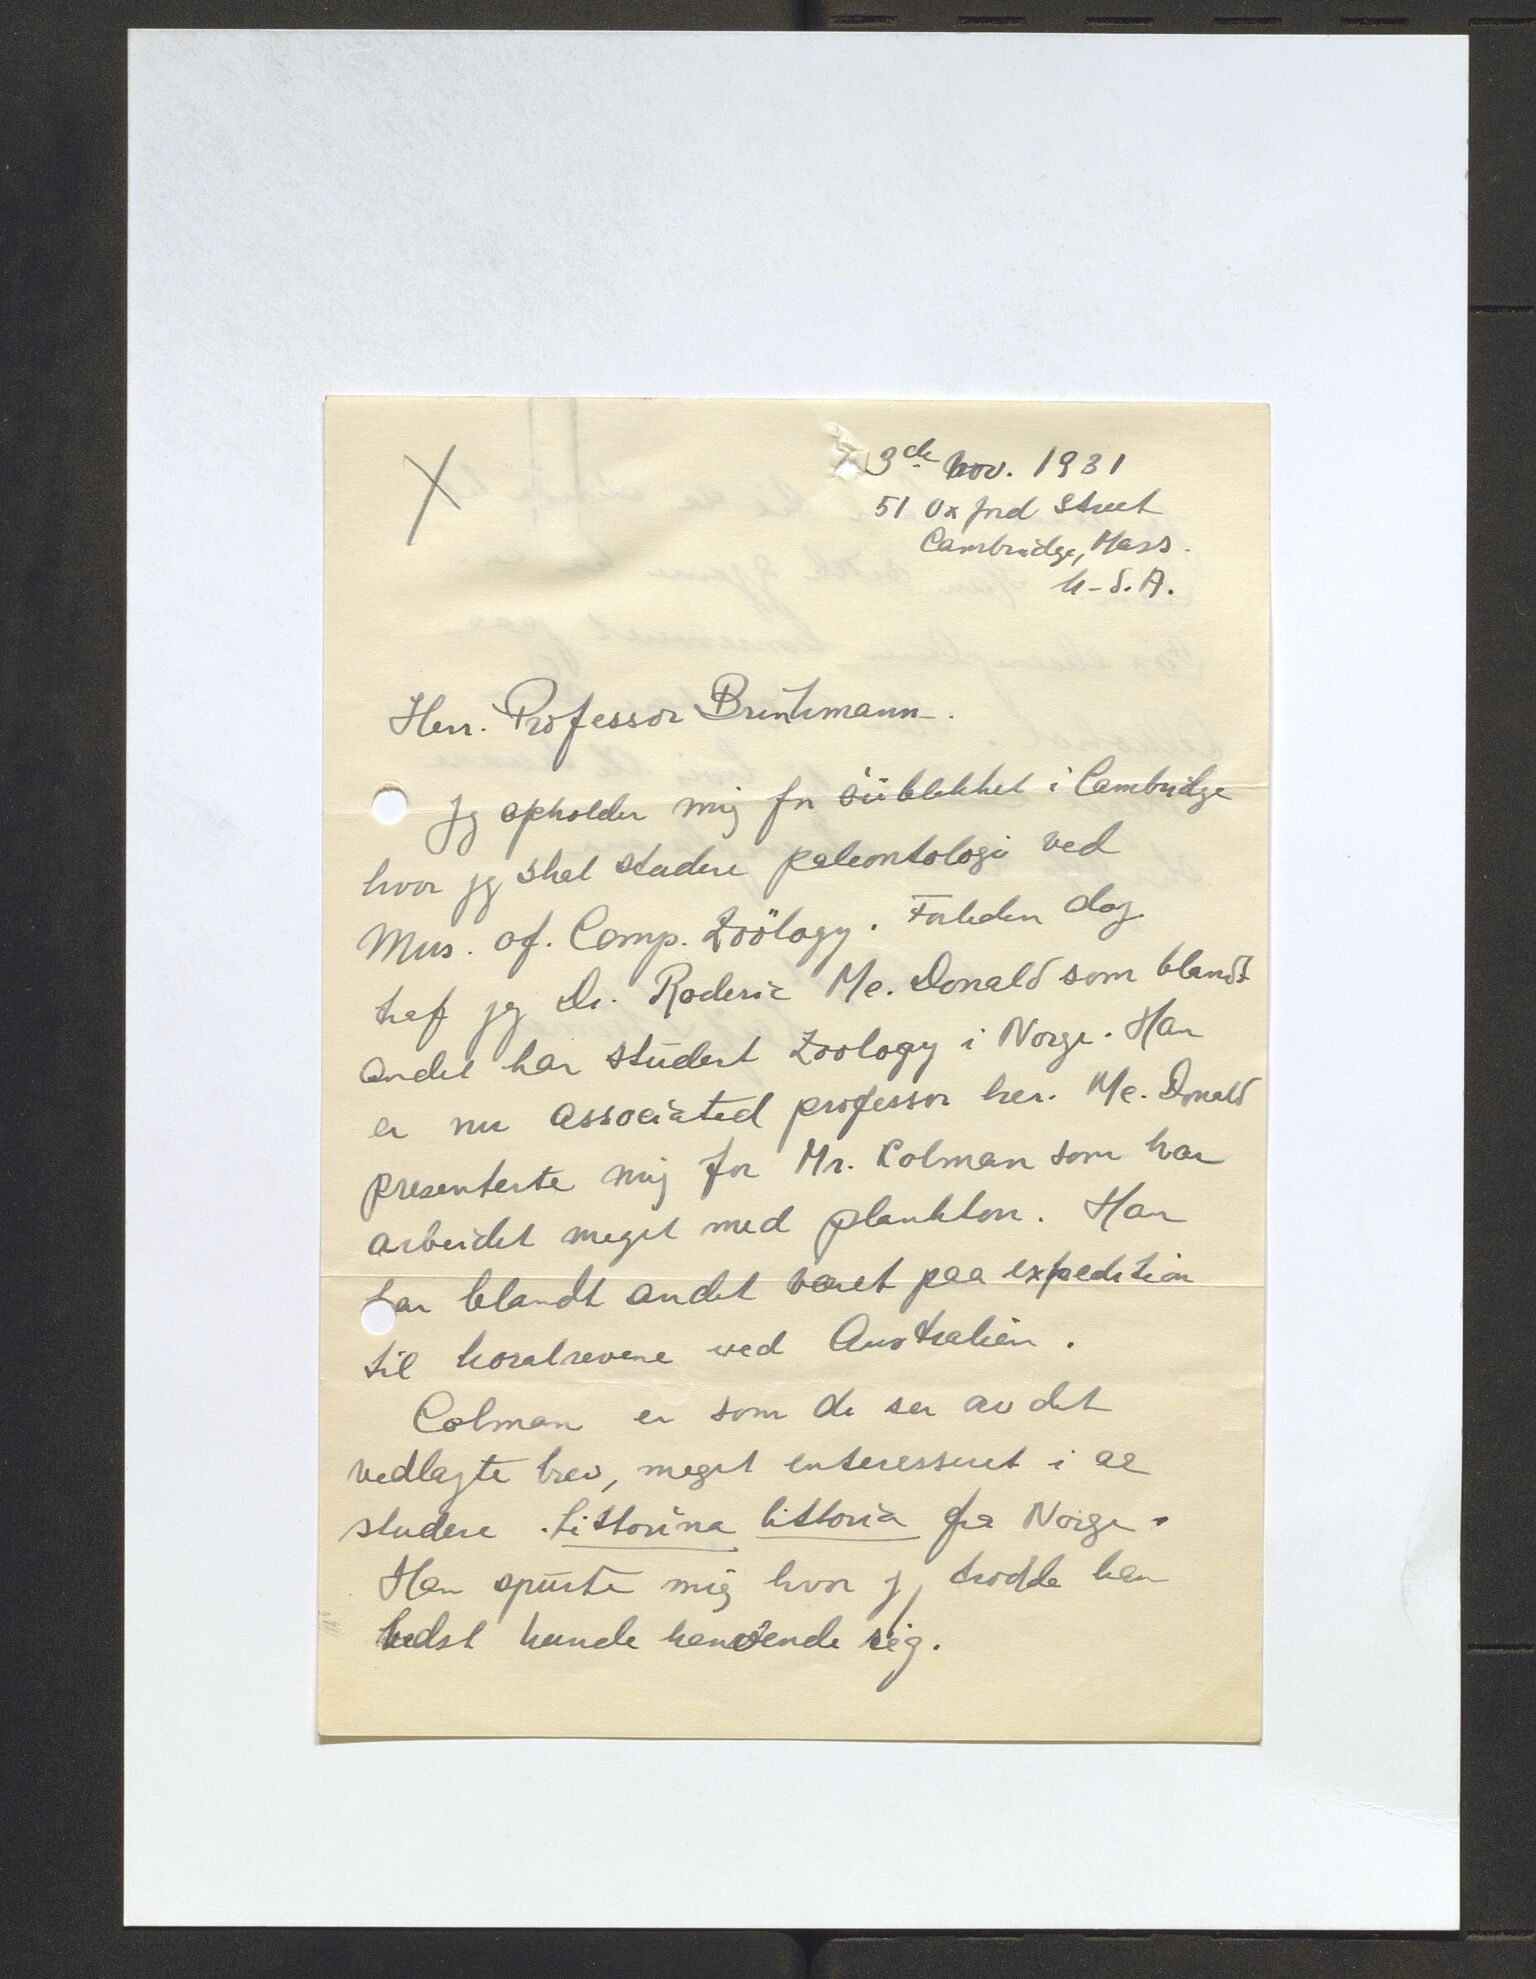 3de nov. 1931
51 Oxford Street
Cambridge, Mass.
U.S.A.
Herr. Professor Brinkmann.
Jg opholder mig for öiblikket i Cambridge
hvor jg skal studere paleontologi ved
Mus. of. Comp. Zoölogy. Forleden dag
traf jeg Dr. Roderic Mc. Donald som blandt
andet har studert Zoology i Norge. Han
er nu associated professor her. Mc. Donald
presenterte mig for Mr. Colman som har
arbeidet meget med plankton. Han
har blandt andet været paa expedition
til koralrevene ved Australien.
Colman er som de ser av det
vedlagte brev, meget interessert i aa
studere Littorina littoria fra Norge.
Han spurte mig hvor jg trodde han
bedst kunde henvende sig.